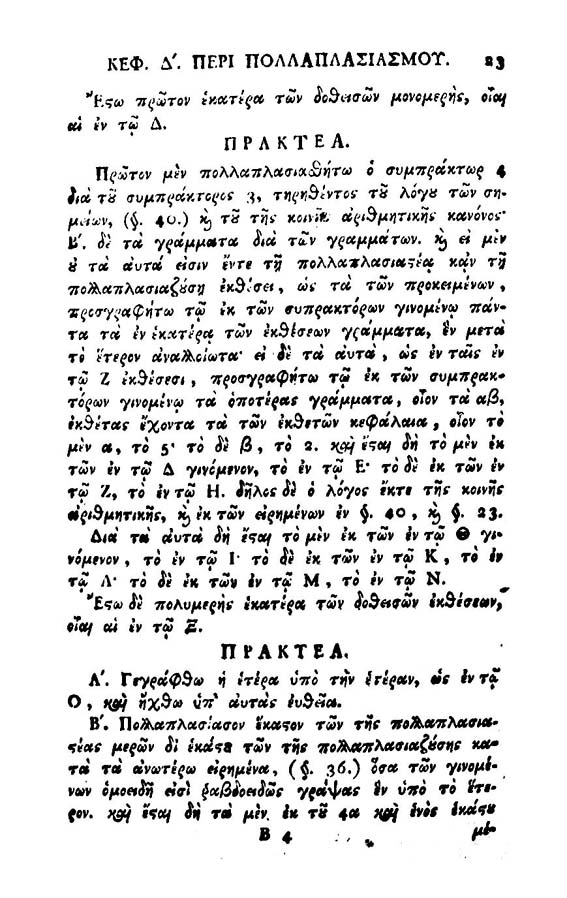 ΚΕΦ. Δ΄. ΠΕΡΙ ΠΟΛΛΑΠΛΑΣΙΑΣΜΟΥ. 23
Ἔςω πρῶτον ἑκατέρα τῶν δοθεισῶν μονομερὴς, οἷαι
αἱ ἐν τῷ Δ.
ΠΡΑΚΤΕΑ.
Πρῶτον μὲν πολλαπλασιαθήτω ὁ συμπράκτωρ 4
διὰ τȣ͂ συμπράκτορος 3, τηρηθέντος τȣ͂ λόγȣ τῶν ση-
μείων, (§. 40.) ϗ τȣ͂ τῆς κοινῆς ἀριθμητικῆς κανόνος·
Β΄. δὲ τὰ γράμματα διὰ τῶν γραμμάτων. ϗ εἰ μὲν
ȣ τὰ αὐτά εἰσιν ἔντε τῇ πολλαπλασιαςέᾳ κᾀν τῇ
πολλαπλασιαζȣ́σῃ ἐκθέσει, ὡς τὰ τῶν προκειμένων,
προσγραφήτω τῷ ἐκ τῶν συπρακτόρων γινομένῳ πάν-
τα τὰ ἐν ἑκατέρᾳ τῶν ἐκθέσεων γράμματα, ἓν μετὰ
τὸ ἕτερον ἀναλλοίωτα· εἰ δὲ τὰ αὐτὰ, ὡς ἐν ταῖς ἐν
τῷ Ζ ἐκθέσεσι, προσγραφήτω τῷ ἐκ τῶν συμπρακ-
τόρων γινομένῳ τὰ ὁποτέρας γράμματα, οἷον τὰ αβ,
ἐκθέτας ἔχοντα τὰ τῶν ἐκθετῶν κεφάλαια, οἷον τὸ
μὲν α, τὸ 5· τὸ δὲ β, τὸ 2. καὶ ἔςαι δὴ τὸ μὲν ἐκ
τῶν ἐν τῷ Δ γινόμενον, τὸ ἐν τῷ Ε· τὸ δὲ ἐκ τῶν ἐν
τῷ Ζ, τὸ ἐν τῷ Η. δῆλος δὲ ὁ λόγος ἔκτε τῆς κοινῆς
ἀριθμητικῆς, ϗ ἐκ τῶν εἰρημένων ἐν §. 40, ϗ §. 23.
Διὰ τὰ αὐτὰ δὴ ἔςαι τὸ μὲν ἐκ τῶν ἐν τῷ Θ γι-
νόμενον, τὸ ἐν τῷ Ι· τὸ δὲ ἐκ τῶν ἐν τῷ Κ, τὸ ἐν
τῷ Λ· τὸ δὲ ἐκ τῶν ἐν τῷ Μ, τὸ ἐν τῷ Ν.
Ἔςω δὲ πολυμερὴς ἑκατέρα τῶν δοθεισῶν ἐκθέσεων,
οἷαι αἱ ἐν τῷ Ξ.
ΠΡΑΚΤΕΑ.
Α΄. Γεγράφθω ἡ ἑτέρα ὑπὸ τὴν ἑτέραν, ὡς ἐν τῷ
Ο, καὶ ἤχθω ὑπ' αὐτὰς εὐθεῖα.
Β΄. Πολλαπλασίασον ἕκαςον τῶν τῆς πολλαπλασια-
ςέας μερῶν δι ἑκάςȣ τῶν τῆς πολλαπλασιαζȣ́σης κα-
τὰ τὰ ἀνωτέρω εἰρημένα, (§. 36.) ὅσα τῶν γινομέ-
νων ὁμοειδῆ εἰσὶ ῥαβδοειδῶς γράψας ἓν ὑπὸ τὸ ἕτε-
ρον. καὶ ἔςαι δὴ τὰ μὲν. ἐκ τȣ͂ 4α καὶ ἑνὸς ἑκάςȣ
Β 4 μέ-